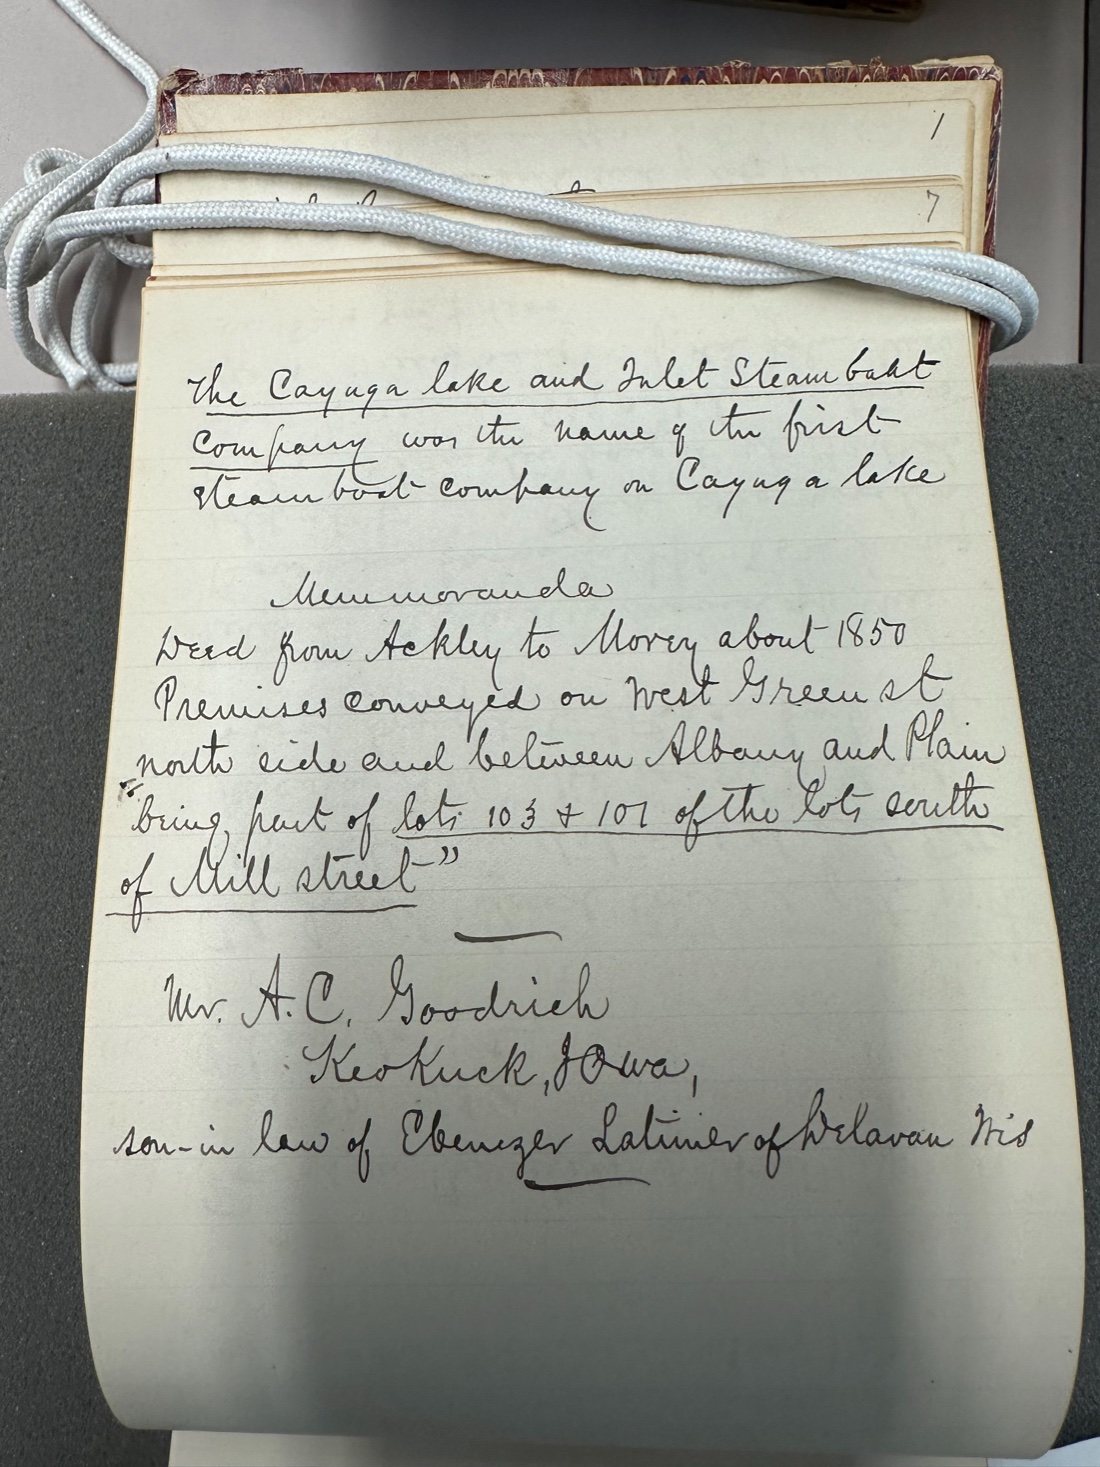 1
7
The Cayuga lake and Inlet Steamboat
Company was the name of the first
steamboat company on Cayuga lake
Memmoranda
Deed from Ackley to Morey about 1850
Premises conveyed on West Green st
north side and between Albany and Plain
"being part of lots 103 & 101 of the lots south
of Mill street"
Mr. A. C. Goodrich
Keokuck, Iowa,
son-in law of Ebenezer Latimer of Delavan Wis